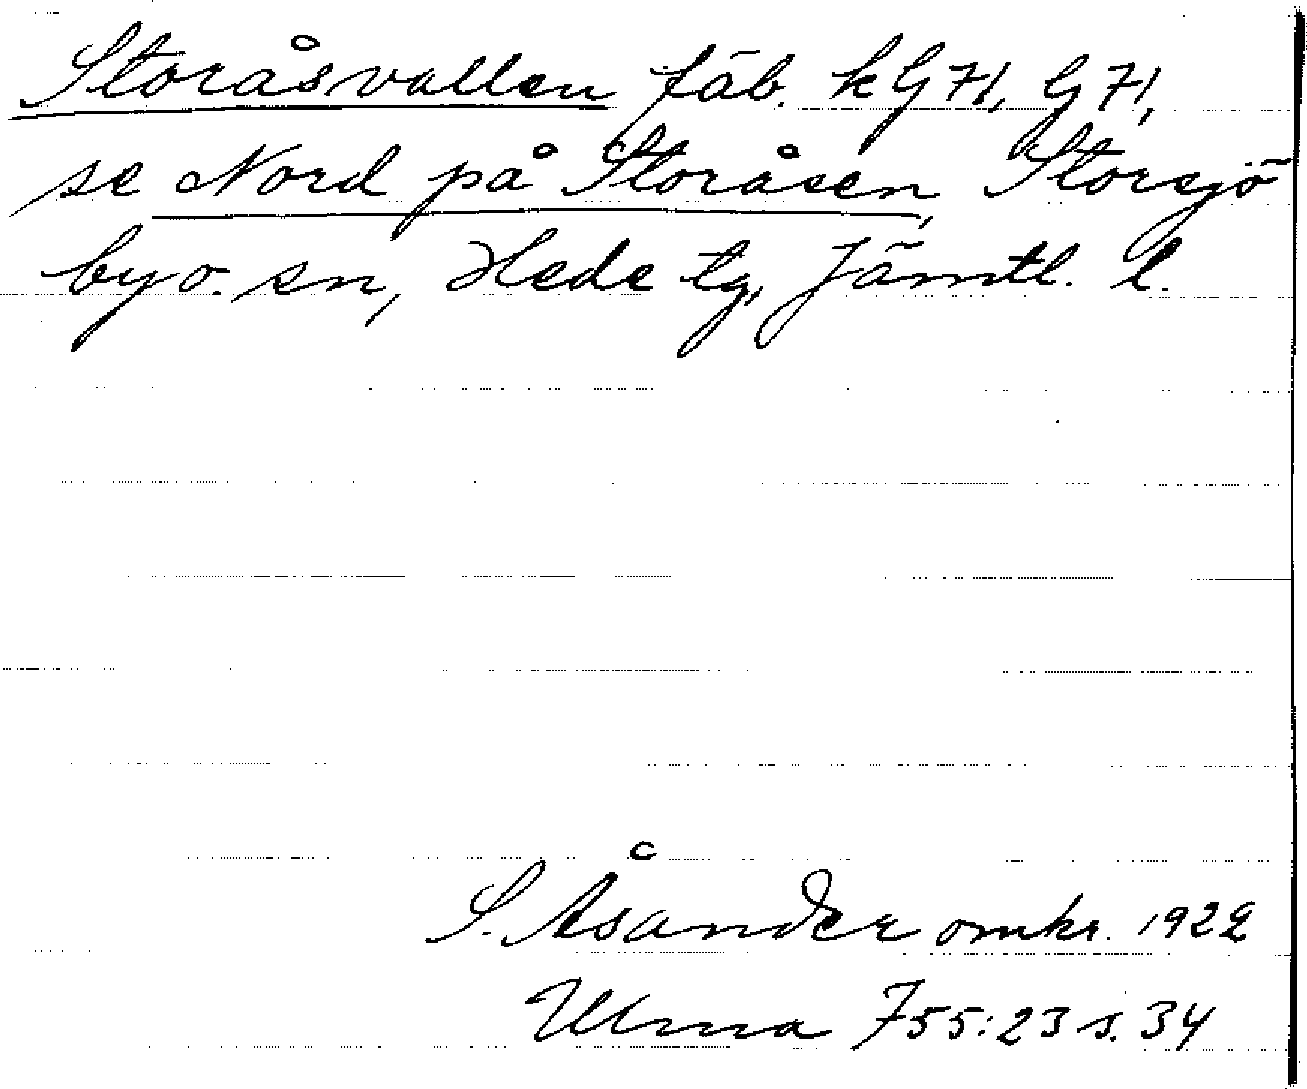 Storåsvallen fäb. kG71, G71,
se Nord på Storåsen, Storsjö
by o. sn, Hede tg, Jämtl. l.
S. Åsander omkr. 1922
Ulma 755:23 s. 34